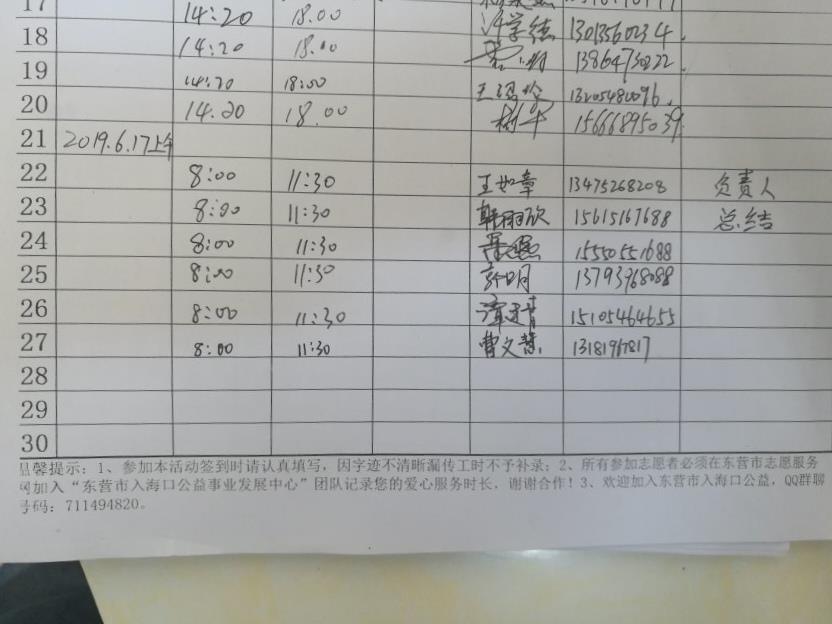 17 14:20 18.00
18 14:20 18.00 许学德 13013560234.
19 14:20 18:00 13864730222.
20 14.20 18.00 13205480096.
21 2019.6.17上午 15666895039
22 8:00 11:30 王如章 13475268208 负责人
23 8:00 11:30 韩雨欣 15615167688 总结
24 8:00 11:30 15550551688
25 8:00 11:30 郭明 13793968088
26 8:00 11:30 谭建青 15105464655
27 8:00 11:30 曹文慧 13181967817
28
29
30
温馨提示：1、参加本活动签到时请认真填写，因字迹不清晰漏传工时不予补录；2、所有参加志愿者必须在东营市志愿服务
网加入“东营市入海口公益事业发展中心”团队记录您的爱心服务时长，谢谢合作！3、欢迎加入东营市入海口公益，QQ群聊
号码：711494820。